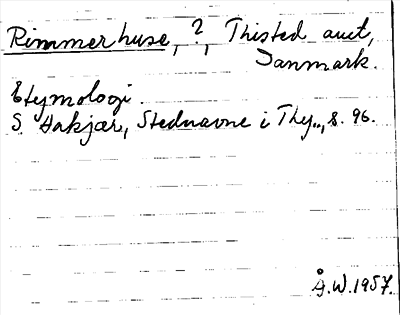 Rimmerhuse, ?, Thisted amt,
Danmark.
Etymologi.
S. Hakjær, Stednavne i Thy., s. 96.
Å.W. 1957.